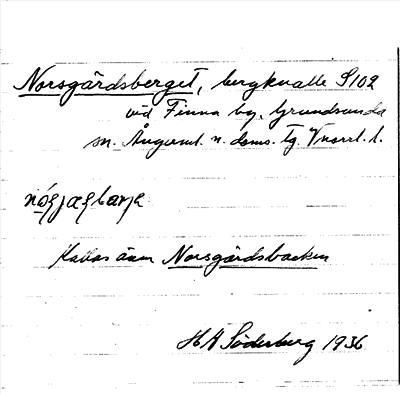 Norsgårdsberget, bergknalle S102
vid Finna by, Grundsunda
sn. Ångerml. n. doms. tg. Vnorrl. l.
Kallas även Norsgårdsbacken
H A Söderberg 1936